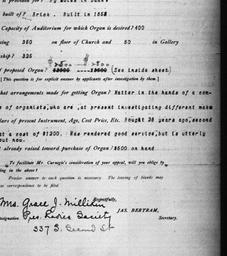 built of? Brick. Built in 1858
Capacity of Auditorium for which Organ is desired? 400
350 on floor of Church and 50 in Gallery
325
proposed Organ? (See inside sheet)
[This question is for explicit answer in applicants ere agreement by them.]
What arrangements made for getting Organ? Matter in the hands of a com-
of organists, who are, at present investigating different make
of present Instrument, Age, Cost Price, Etc. Bought 28 years ago, second
at a cost of $1200. Has rendered good service, but is utterly
out now.
already raised toward purchase of Organ? $500 on hand
To facilitate Mr. Carnegie's consideration of your appeal, will you oblige by
in the above?
Precise answer to each question is necessary. The leaving of blanks may
correspondence to be filed.
Respectfully,
Mrs. Grace J. Millikin
JAS. BERTRAM,
Pres. Ladies Society
Secretary.
337 S. Second St